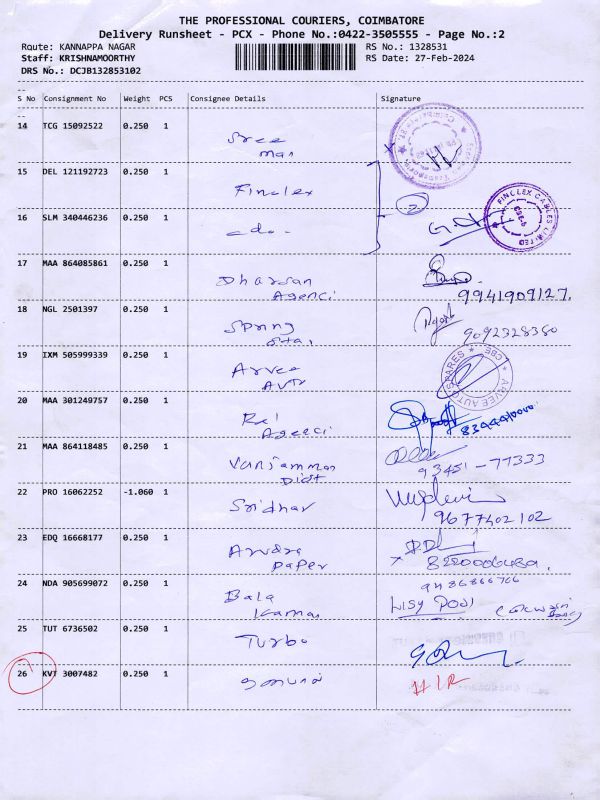 THE PROFESSIONAL COURIERS, COIMBATORE
Delivery Runsheet - PCX - Phone No.:0422-3505555 - Page No.:2
Route: KANNAPPA NAGAR RS No.: 1328531
Staff: KRISHNAMOORTHY RS Date: 27-Feb-2024
DRS No.: DCJB132853102
S No Consignment No Weight PCS Consignee Details Signature
14 TCG 15092522 0.250 1 Sree
mas
15 DEL 121192723 0.250 1 Finolex
16 SLM 340446236 0.250 1 -do-
2
FINOLEX CABLES LIMITED
17 MAA 864085861 0.250 1 Dharsan
Agenci 9941909127.
18 NGL 2501397 0.250 1 Spring
Star 9092328380
19 IXM 505999339 0.250 1 Arvee
Auto
ARVEE AUTO SPARES * CBE *
20 MAA 301249757 0.250 1 Rai
Agenci
21 MAA 864118485 0.250 1 Variamman
Dist 93451-77333
22 PRO 16062252 -1.060 1 Sridhar
9677402102
23 EDQ 16668177 0.250 1
paper
24 NDA 905699072 0.250 1 Bala 9486866766
Kumar
25 TUT 6736502 0.250 1 Turbo
26 KVT 3007482 0.250 1